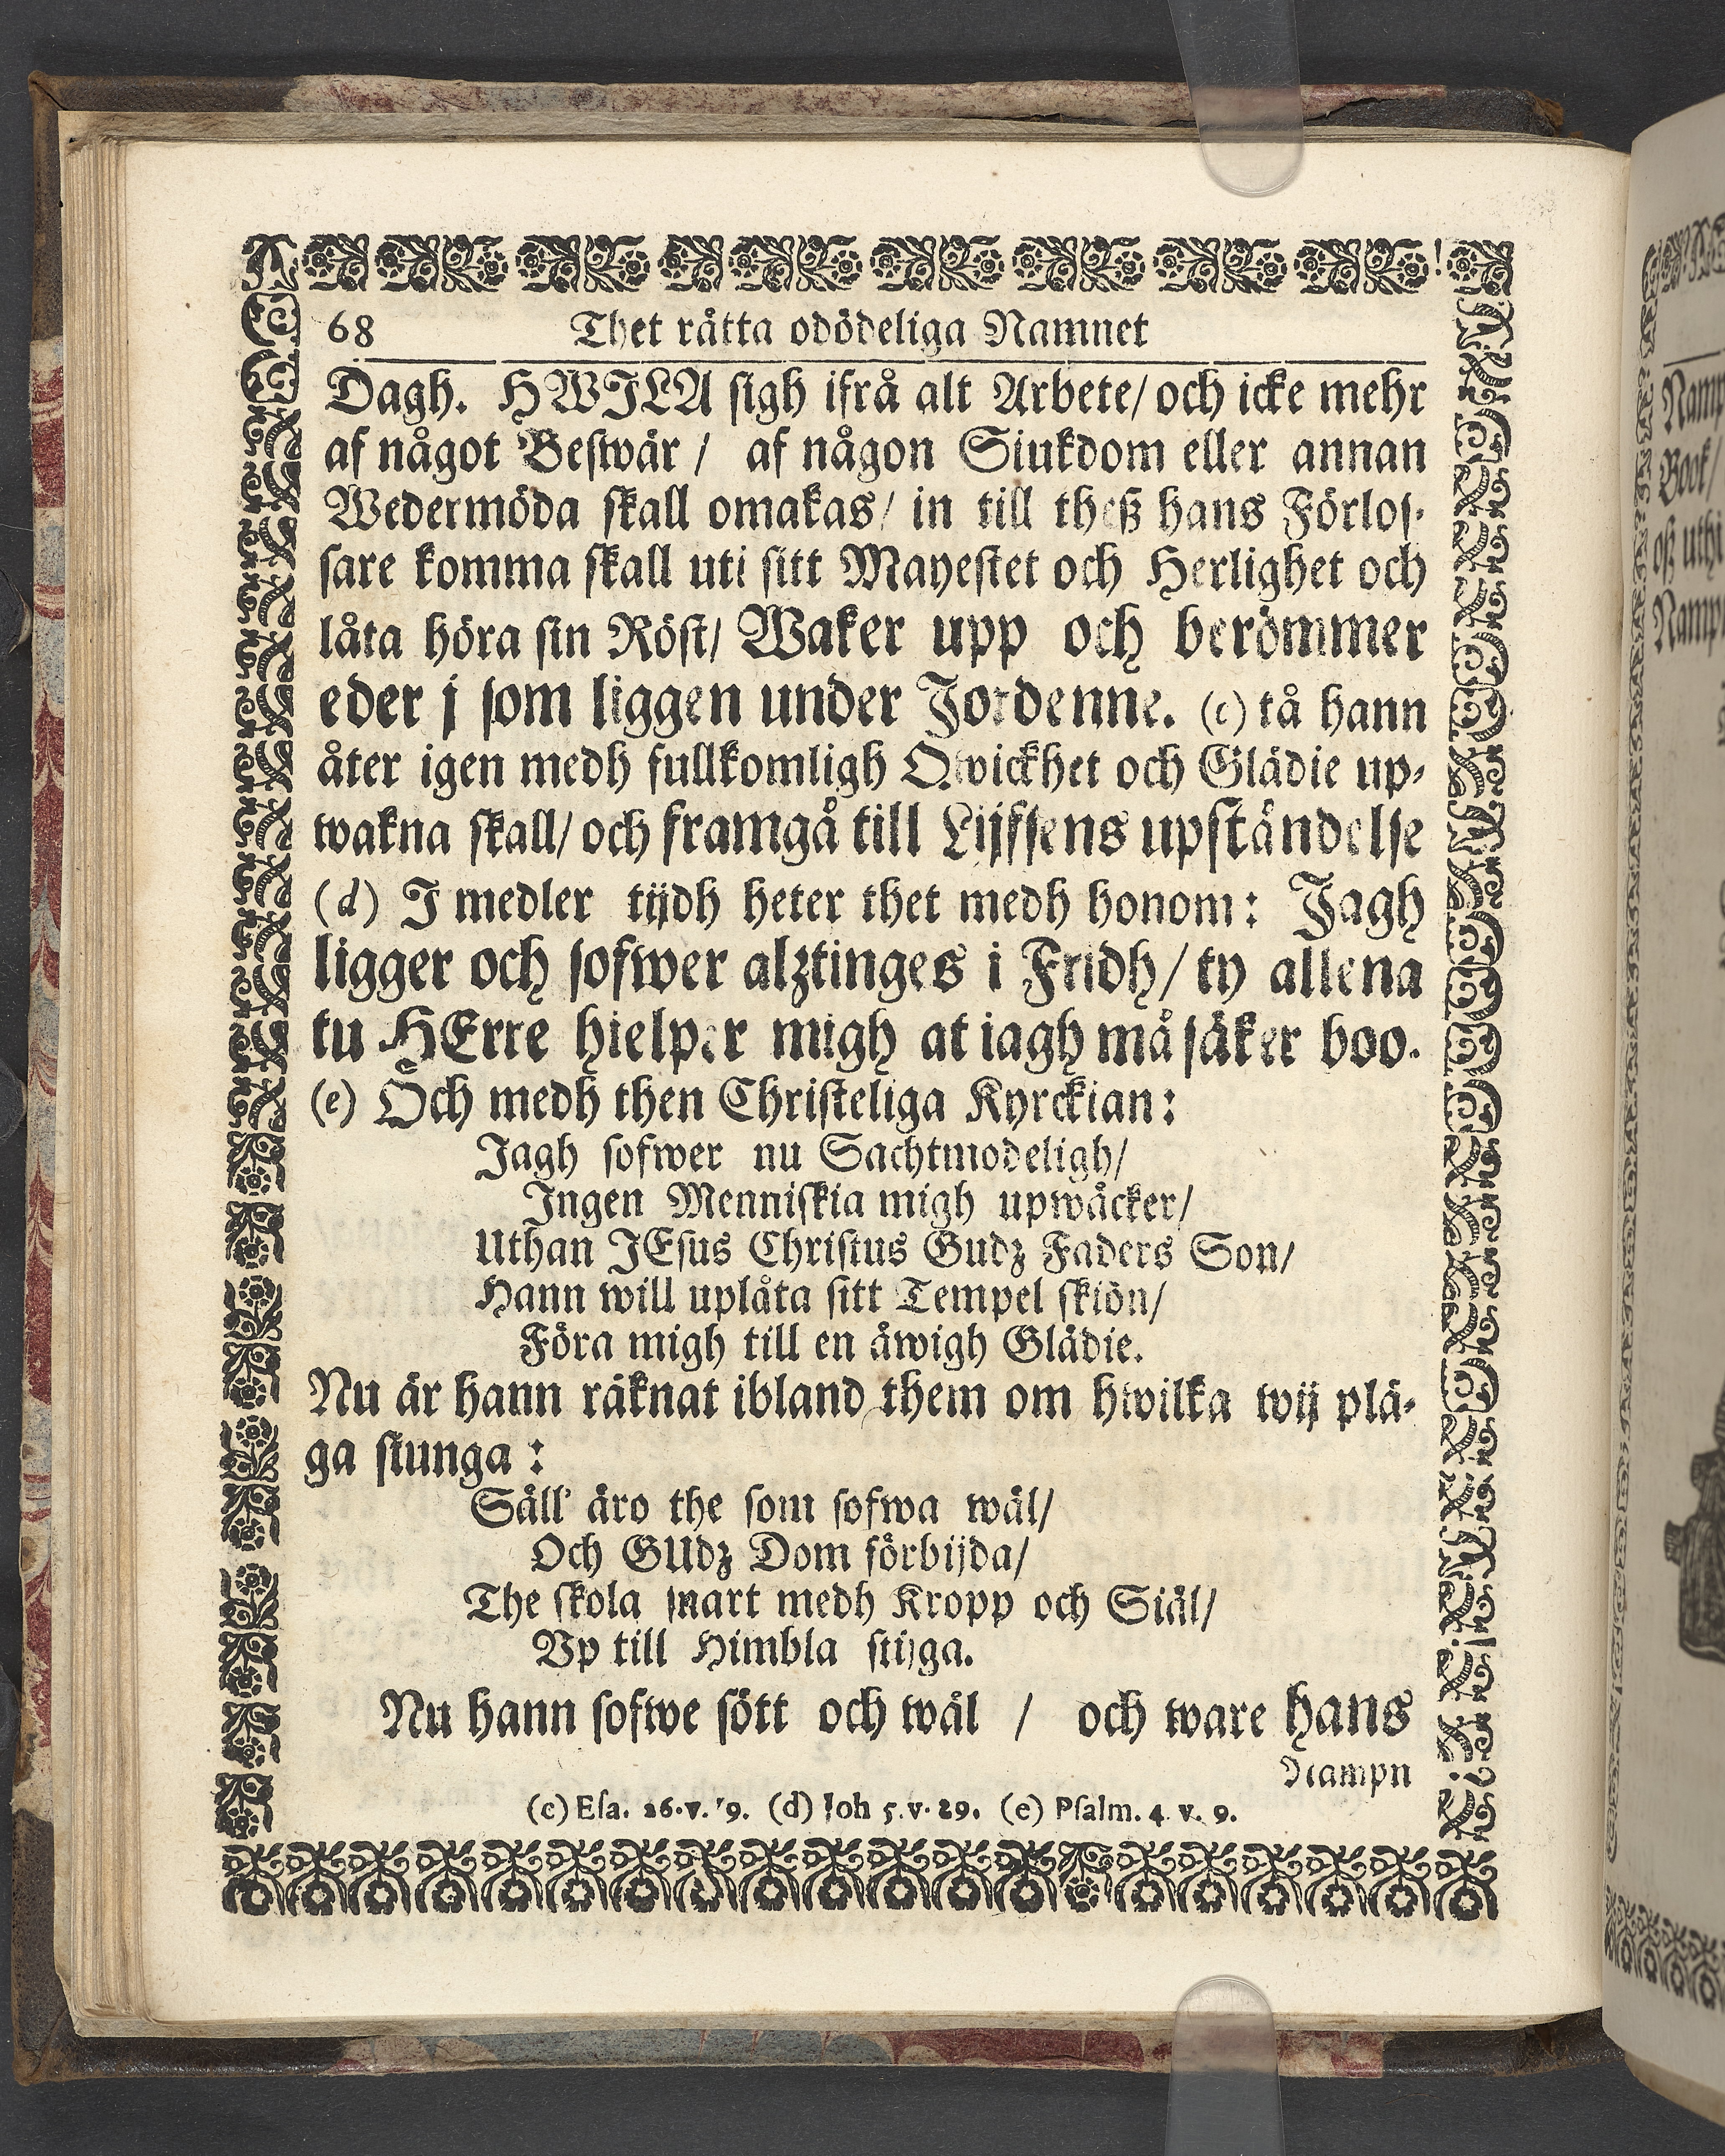 68 Thet rätta odödeliga Namnet
Dagh. HWILA sigh ifrå alt Arbete/ och icke mehr
af något Beswär / af någon Siukdom eller annan
Wedermöda skall omakas/ in till theß hans Förlos-
sare komma skall uti sitt Mayestet och Herlighet och
låta höra sin Röst/ Waker upp och berömmer
eder j som liggen under Jordenne. (c) tå hann
åter igen medh fullkomligh Qwickhet och Glädie up-
wakna skall/ och framgå till Lijfsens upståndelse
(d) I medler tijdh heter thet medh honom: Jagh
ligger och sofwer alztinges i Fridh/ ty allena
tu HErre hielper migh at iagh må säker boo.
(e) Och medh then Christeliga Kyrckian:
Jagh sofwer nu Sachtmodeligh/
Ingen Menniskia migh upwäcker/
Uthan JEsus Christus Gudz Faders Son/
Hann will uplåta sitt Tempel skiön/
Föra migh till en äwigh Glädie.
Nu är hann räknat ibland them om hwilka wij plä-
ga siunga :
Säll' äro the som sofwa wäl/
Och GUdz Dom förbijda/
The skola snart medh Kropp och Siäl/
Vp till Himbla stijga.
Nu hann sofwe sött och wäl / och ware hans
Nampn
(c) Esa. 26. v. 19. (d) Joh 5. v. 29. (e) Psalm. 4 v. 9.
Namp
Book/
oß uthi
Namp